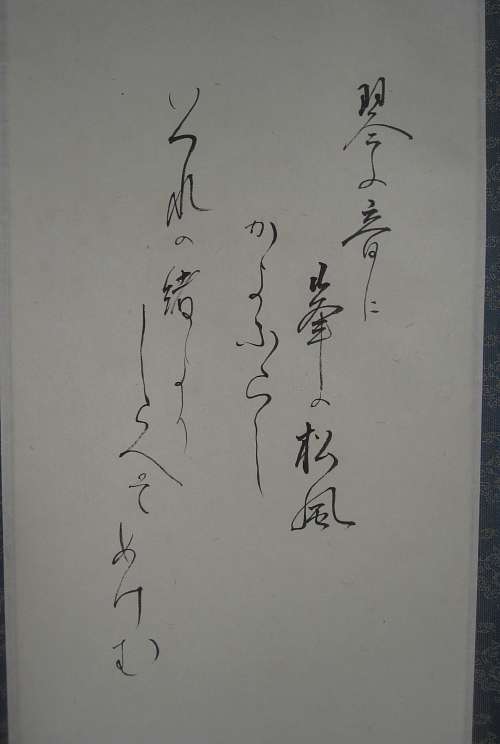 琴の音に
峯の松風
かよふらし
いつれの緒より
しらへそめけむ